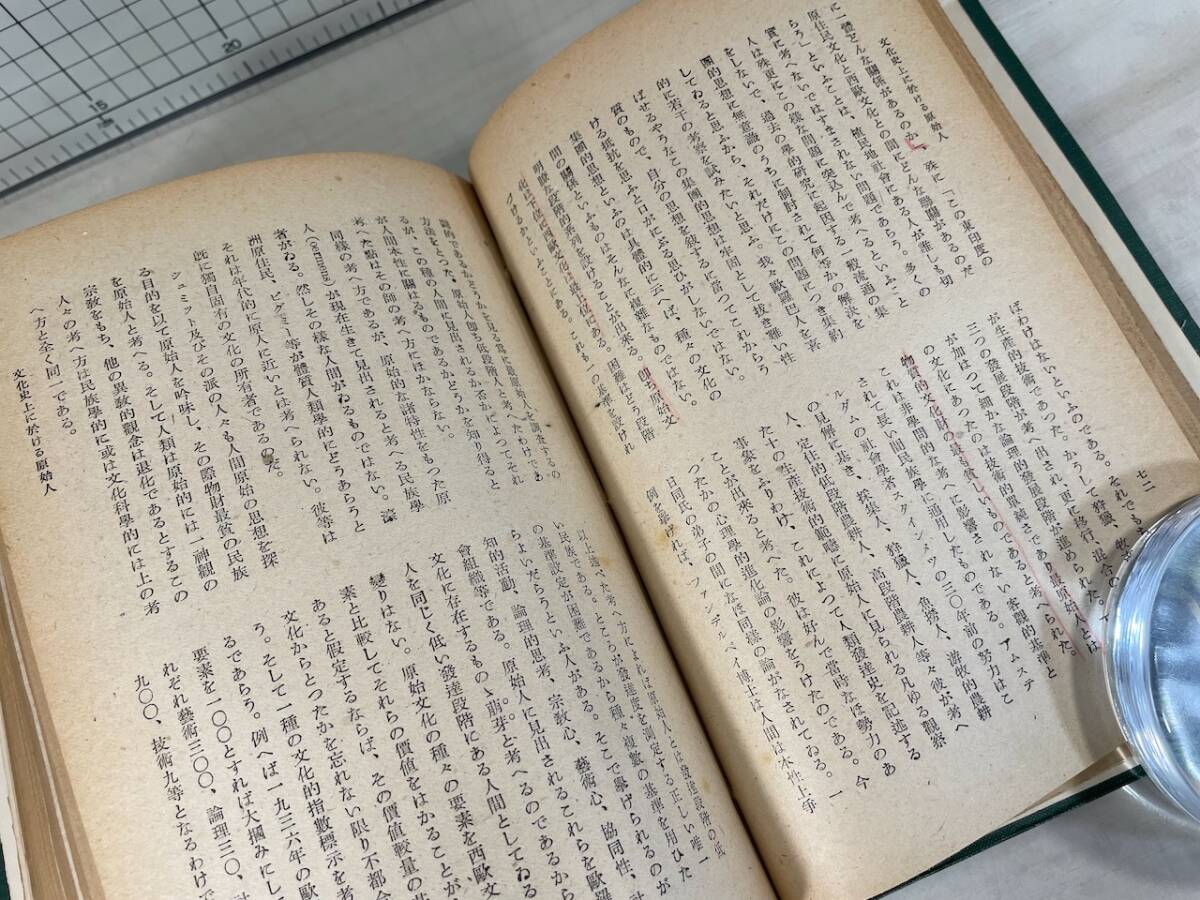 文化史上に於ける原始人
に一體どんな關係があるのか、殊に「この東印度の
原住民文化と西歐文化との間にどんな聯關があるのだ
らう」といふことは、植民地社會にある人が誰しも切
實に考へないではすまされない問題であらう。多くの
人は殊更にこの樣な問題に突込んで考へるといふこと
をしないで、過去の學的研究に起因する一般流通の集
團的思想に無意識のうちに制肘されて何等かの解決を
してゐると思ふから、それだけにこの問題につき集約
的に若干の考察を試みたいと思ふ。我々歐羅巴人を喜
ばせるやうなこの集團的思想は牢固として拔き難い性
質のもので、自分の思想を敍するに當つてこれからう
ける抵抗を思ふと口がにぶる思ひがしないではない。
集團的思想といふのは具體的に云へば、種々の文化の
間の關係といふものはそんなに複雜なものではない。
明瞭な段階的系列を設けることが出來る。卽ち原始文
化は下位に西歐文化は最上位にある。
これも一つの基準を設けれ
困難はどう段階
づけるかといふことにある。
七二
ぼわけはないといふのである。それでも
が生產的技術であつた。かうして狩獵、
三つの發展段階が考へ出され、更に移行、混合の
が加はつて細かな論理的發展段階が進められた。
の文化にあつたのは技術的單純さであり最原始人とは
物質的文化財の最も貧しいものであると考へられた。
これは非學問的な考へに影響されない客觀的基準と
されて長い間民族學に通用したものである。アムステ
ルダムの社會學者スタインメッツの三〇年前の努力はこ
の見解に基き、採集人、狩獵人、魚撈人、游牧的農耕
人、定住的低段階農耕人、高段階農耕人等々彼が考へ
た十の生產技術的範疇に原始人に見られる凡ゆる觀察
事象をふりわけ、これによつて人類發達史を記述する
ことが出來ると考へた。彼は好んで當時なほ勢力のあ
つたかの心理學的進化論の影響をうけたのである。今
日同氏の弟子の間になほ同樣の論がなされてゐる。一
例を擧げれば、ファンデルベイ博士は人間は本性上等
質的であるかどうかを見る爲に最原始人を調査するの
方法をとつた。原始人卽ち低段階人と考へたわけであ
るが、この種の人間に見出されるか否かによつてそれ
が人間本性に關はるものであるかどうかを知り得ると
考へた點はその師の考へ方にほかならない。
同樣の考へ方であるが、原始的な諸特性をもつた原
人が現在生きて見出されると考へる民族學
者がゐる。然しその樣な人間がゐるものではない。濠
洲原住民、ピグミー等が體質人類學的にどうあらうと
それは年代的に原人に近いとは考へられない。彼等は
旣に獨自固有の文化の所有者であるのだ。
シュミット及びその派の人々も人間原始の思想を探
る目的を以て原始人を吟味し、その際物財最貧の民族
を原始人と考へる。そして人類は原始的には一神觀の
宗敎をもち、他の異敎的觀念は退化であるとするこの
人々の考へ方は民族學的に或は文化科學的には上の考
へ方と全く同一である。
文化史上に於ける原始人
以上述べた考へ方によれば原始人とは發達段階の低
い民族である。ところが發達度を測定する正しい唯一
の基準設定が困難であるから種々、複數の基準を用ひた
らよいだらうといふ人がある。そこで擧げられるのが
知的活動、論理的思考、宗敎心、藝術心、協同性、社
會組織等である。原始人に見出されるこれらを歐羅
文化に存在するものゝ萠芽と考へるのであるから
人を同じく低い發達段階にある人間としてゐる
變りはない。原始文化の種々の要素を西歐文
素と比較してそれらの價値をはかることが
あると假定するならば、その價値較量の
文化からとつたかを忘れない限り不都合
う。そして一種の文化的指數標示を考
るであらう。例へば一九三六年の歐
要素を一〇〇とすれば大摑みにし
れぞれ藝術三〇〇、論理三〇、
九〇〇、技術九等となるわけで